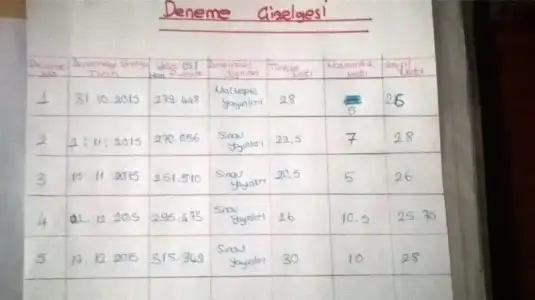 Deneme Çizelgesi
Deneme No Denemenin Tarih Denemenin Yayınları Türkçe Neti Matematik Neti Sosyal Neti
1 31 10 2015 279.448 Maltepe Yayınları 28 5 26
2 2 : 11 : 2015 270.056 Sınav Yayınları 22,5 7 28
3 10 11 2015 261.510 Sınav Yayınları 20,5 5 26
4 02. 12 2015 295.475 Sınav Yayınları 26 10.5 25 75
5 12. 12 2015 315.349 Sınav Yayınları 30 10 28